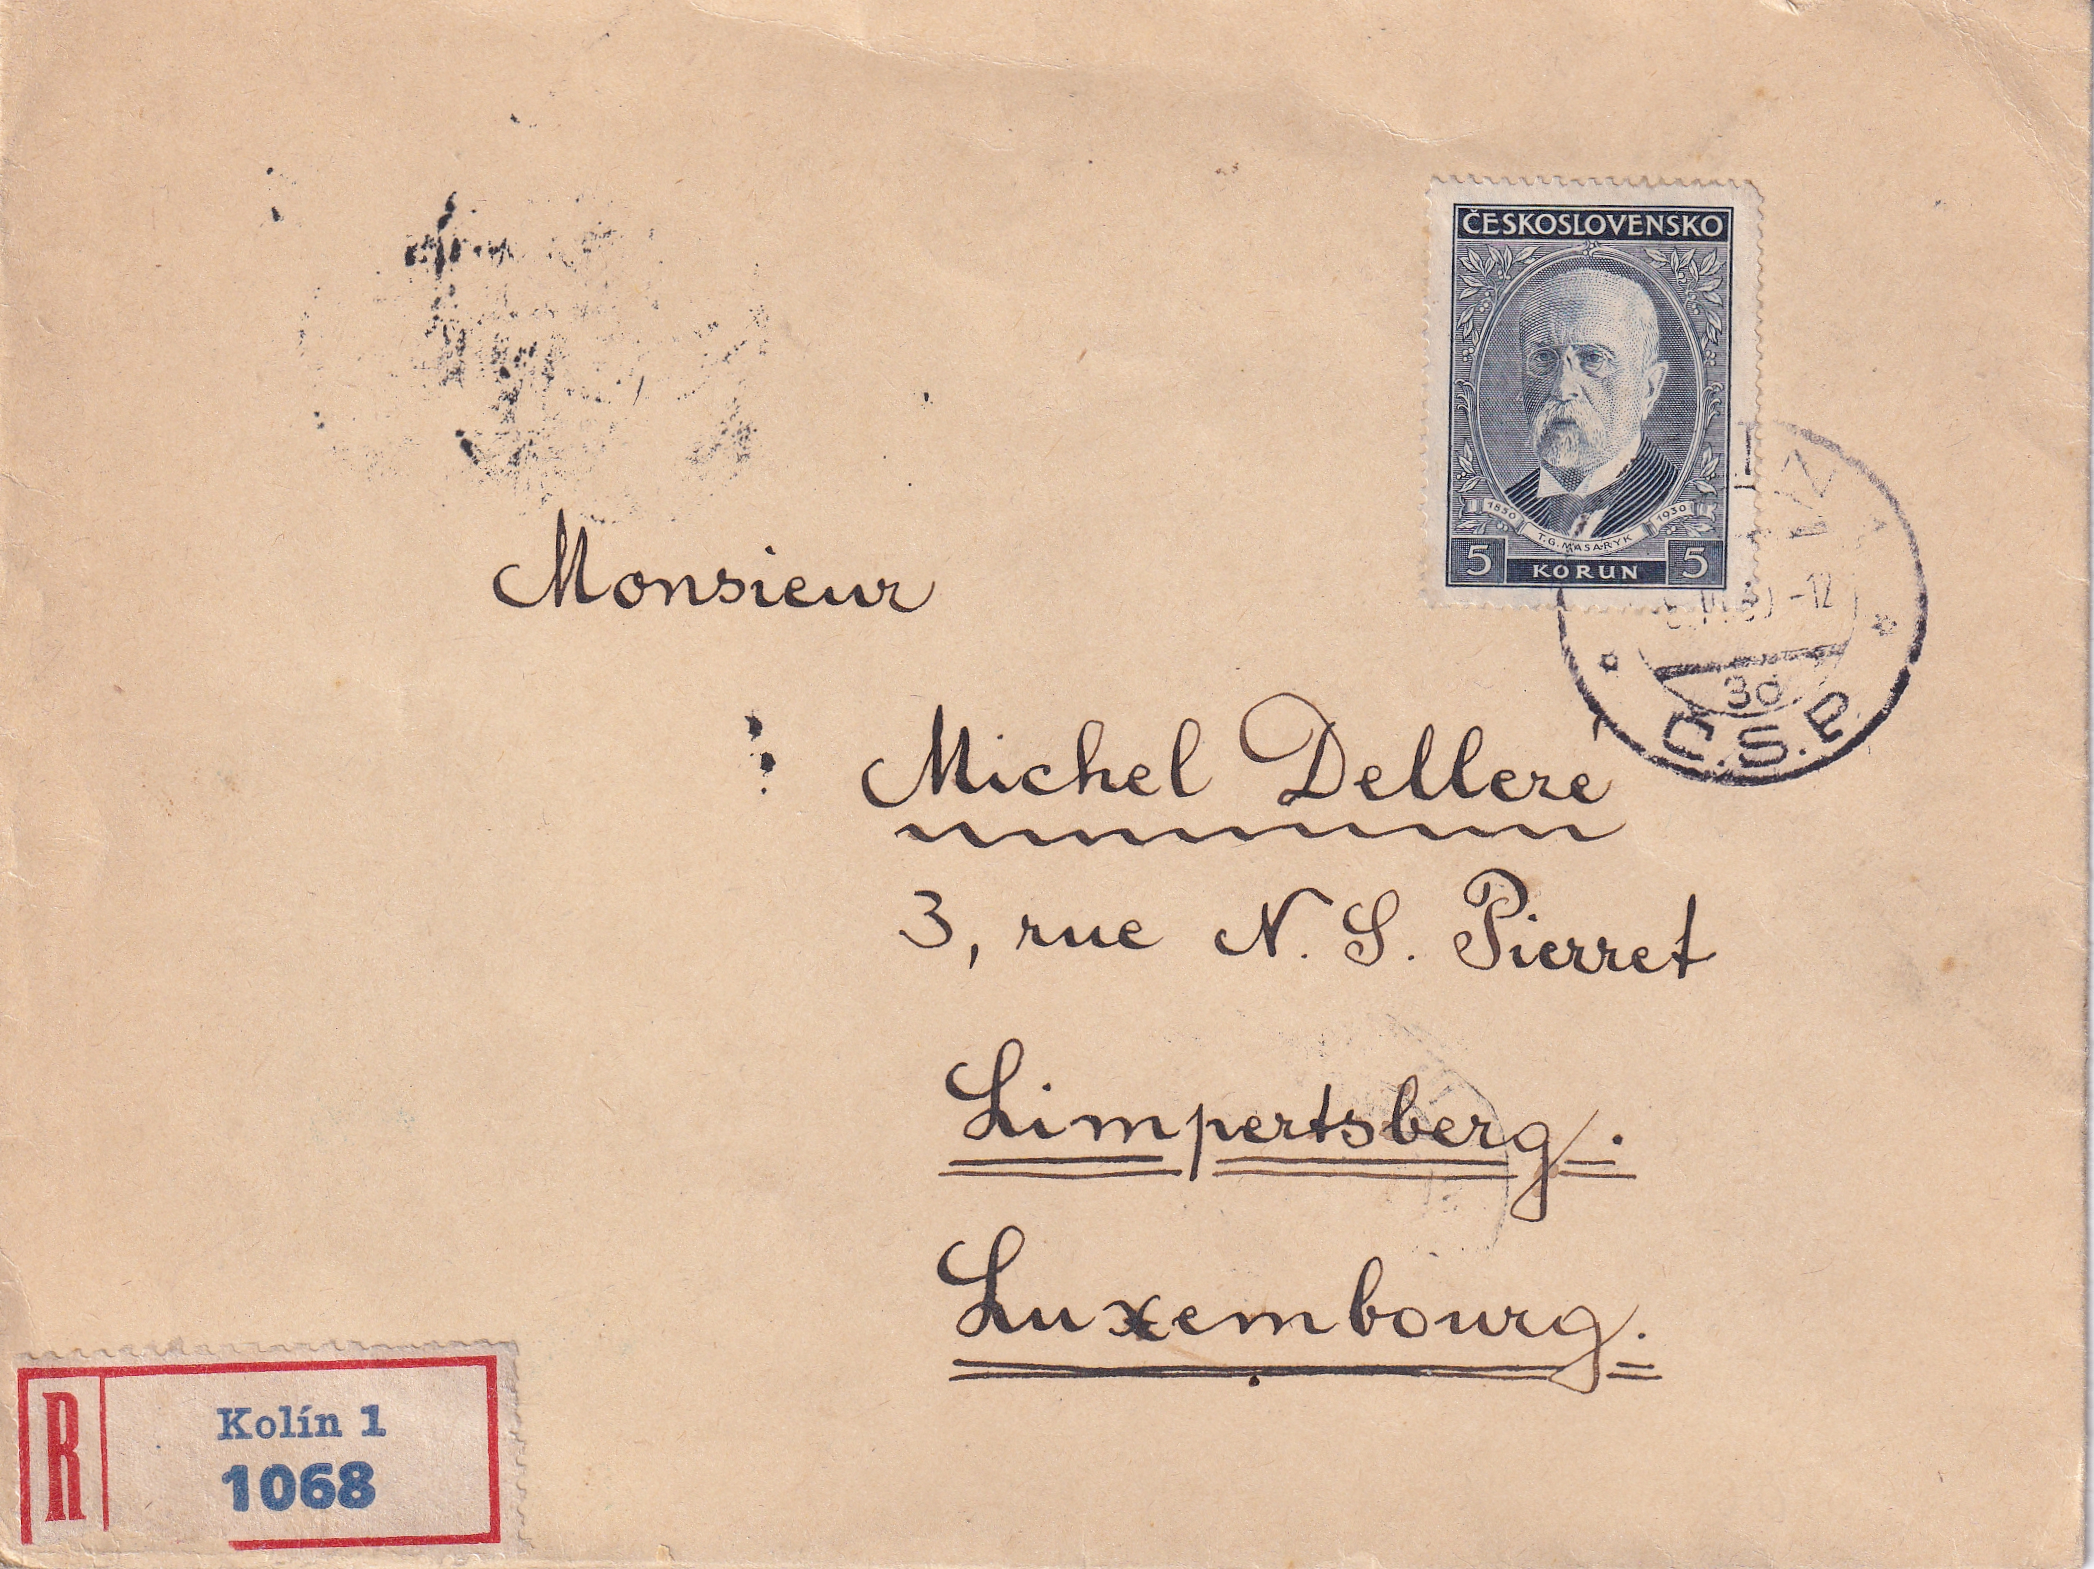 ČESKOSLOVENSKO
1850 T.G.MASARYK 1930
5 KORUN 5
-12
3d
Č.S.P.
Monsieur
Michel Delleré
3, rue N. S. Pierret
Limpertsberg.
Luxembourg.
R
Kolín 1
1068